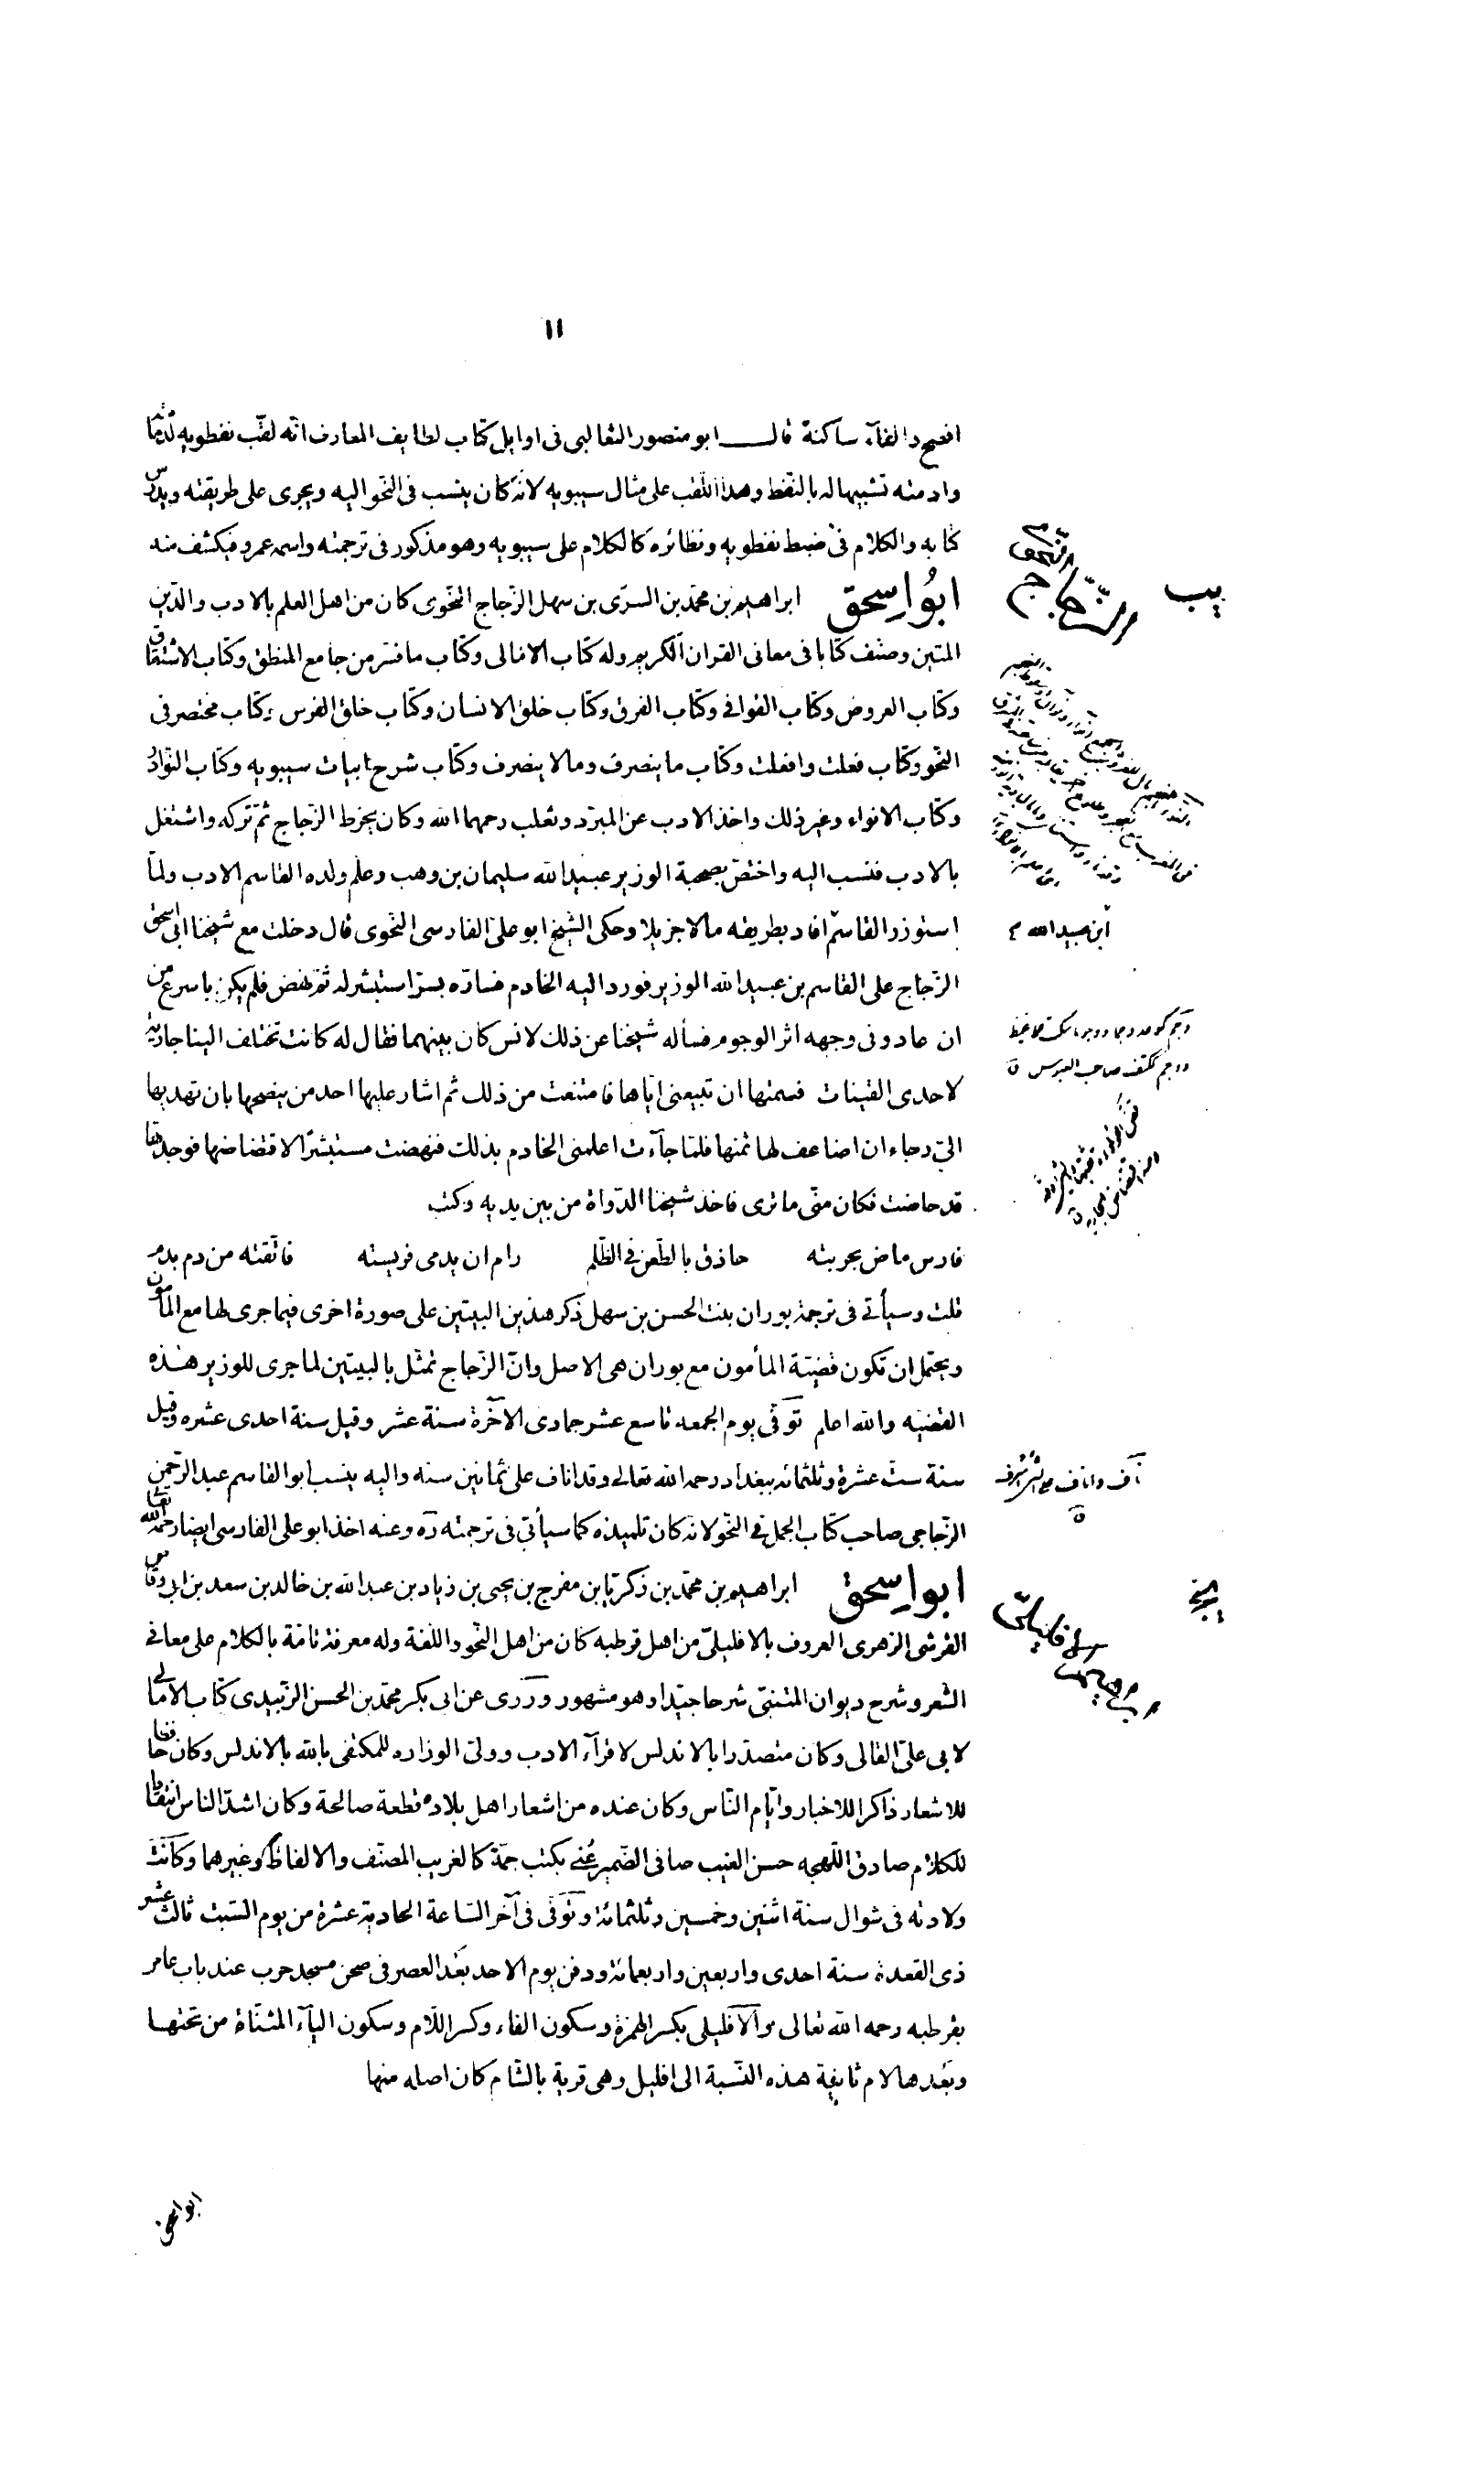 ١١
افصح والفآء ساكنة قال ابو منصور الثعالبى فى اوايل كتاب لطايف المعارف انه لقب نفطويه لدمامته
وادمته تشبيها له بالنفط وهذا اللقب على مثال سيبويه لانه كان ينسب فى النحو اليه ويجرى على طريقته ويدرس
كتابه والكلام فى ضبط نفطويه ونظائره كالكلام على سيبويه وهو مذكور فى ترجمته واسمه عمرو فيكشف منه
ابو اسحق ابراهيم بن محمد بن السرى بن سهل الزجاج النحوى كان من اهل العلم بالادب والدين
المتين وصنف كتابا فى معانى القران الكريم وله كتاب الامالى وكتاب ما فسر من جامع المنطق وكتاب الاشتقاق
وكتاب العروض وكتاب القوافى وكتاب الفرق وكتاب خلق الانسان وكتاب خلق الفرس وكتاب مختصر فى
النحو وكتاب فعلت وافعلت وكتاب ما ينصرف وما لا ينصرف وكتاب شرح ابيات سيبويه وكتاب النوادر
وكتاب الانواء وغير ذلك واخذ الادب عن المبرد وثعلب رحمهما الله وكان يخرط الزجاج ثم تركه واشتغل
بالادب فنسب اليه واختص بصحبة الوزير عبيد الله سليمان بن وهب وعلم ولده القاسم الادب ولما
استوزر القاسم افاد بطريقه مالا جزيلا وحكى الشيخ ابو على الفارسى النحوى قال دخلت مع شيخنا ابى اسحق
الزجاج على القاسم بن عبيد الله الوزير فورد اليه الخادم فساره بسر استبشر له ثم نهض فلم يكن باسرع من
ان عاد وفى وجهه اثر الوجوم فسأله شيخنا عن ذلك لانس كان بينهما فقال له كانت تختلف الينا جارية
لاحدى القينات فسمتها ان تبيعنى اياها فامتنعت من ذلك ثم اشار عليها احد من ينصحها بان تهديها
الى رجاء ان اضاعف لها ثمنها فلما جآءت اعلمنى الخادم بذلك فنهضت مستبشرا لاقتضاضها فوجدتها
قد حاضت فكان منى ما ترى فاخذ شيخنا الدواة من بين يديه وكتب
فارس ماض بحربته حاذق بالطعن فى الظلم رام ان يدمى فريسته فاتقته من دم بدم
قلت وسيأتى فى ترجمة بوران بنت الحسن بن سهل ذكر هذين البيتين على صورة اخرى فيما جرى لها مع المأمون
ويحتمل ان تكون قضية المأمون مع بوران هى الاصل وان الزجاج تمثل بالبيتين لما جرى للوزير هذه
القضيه والله اعلم توفى يوم الجمعه تاسع عشر جمادى الآخرة سنة عشر وقيل سنة احدى عشره وقيل
سنة ست عشرة وثلثمائه ببغداد رحمه الله تعالى وقد اناف على ثمانين سنه واليه ينسب ابو القاسم عبد الرحمن
الزجاجى صاحب كتاب الجمل فى النحو لانه كان تلميذه كما سيأتى فى ترجمته ره وعنه اخذ ابو على الفارسى ايضا رحمه الله تعا
ابو اسحق ابراهيم بن محمد بن زكريا بن مفرج بن يحيى بن زياد بن عبد الله بن خالد بن سعد بن ابى وقاص
القرشى الزهرى المعروف بالافليلى من اهل قرطبه كان من اهل النحو واللغة وله معرفة تامة بالكلام على معانى
الشعر وشرح ديوان المتنبى شرحا جيدا وهو مشهور وروى عن ابى بكر محمد بن الحسن الزبيدى كتاب الامالى
لابى على القالى وكان متصدرا بالاندلس لاقرآء الادب وولى الوزاره للمكتفى بالله بالاندلس وكان حافظا
للاشعار ذاكرا للاخبار وايام الناس وكان عنده من اشعار اهل بلاده قطعة صالحة وكان اشد الناس انتقادا
للكلام صادق اللهجه حسن الغيب صافى الضمير عنى بكتب جمة كالغريب المصنف والالفاظ وغيرهما وكانت
ولادته فى شوال سنة اثنين وخمسين وثلثمائة وتوفى فى آخر الساعة الحادية عشرة من يوم السبت ثالث عشر
ذى القعدة سنة احدى واربعين واربعمائة ودفن يوم الاحد بعد العصر فى صحن مسجد حرب عند باب عامر
بقرطبه رحمه الله تعالى والافليلى بكسر الهمزة وسكون الفاء وكسر اللام وسكون اليآء المثناة من تحتها
وبعدها لام ثانية هذه النسبة الى افليل وهى قرية بالشام كان اصله منها
الزجاج النحوى
يب
ابن عبيد الله
ناف واناف على الشئ اشرف
ابراهيم الافليلى
يج
ابو اسحق